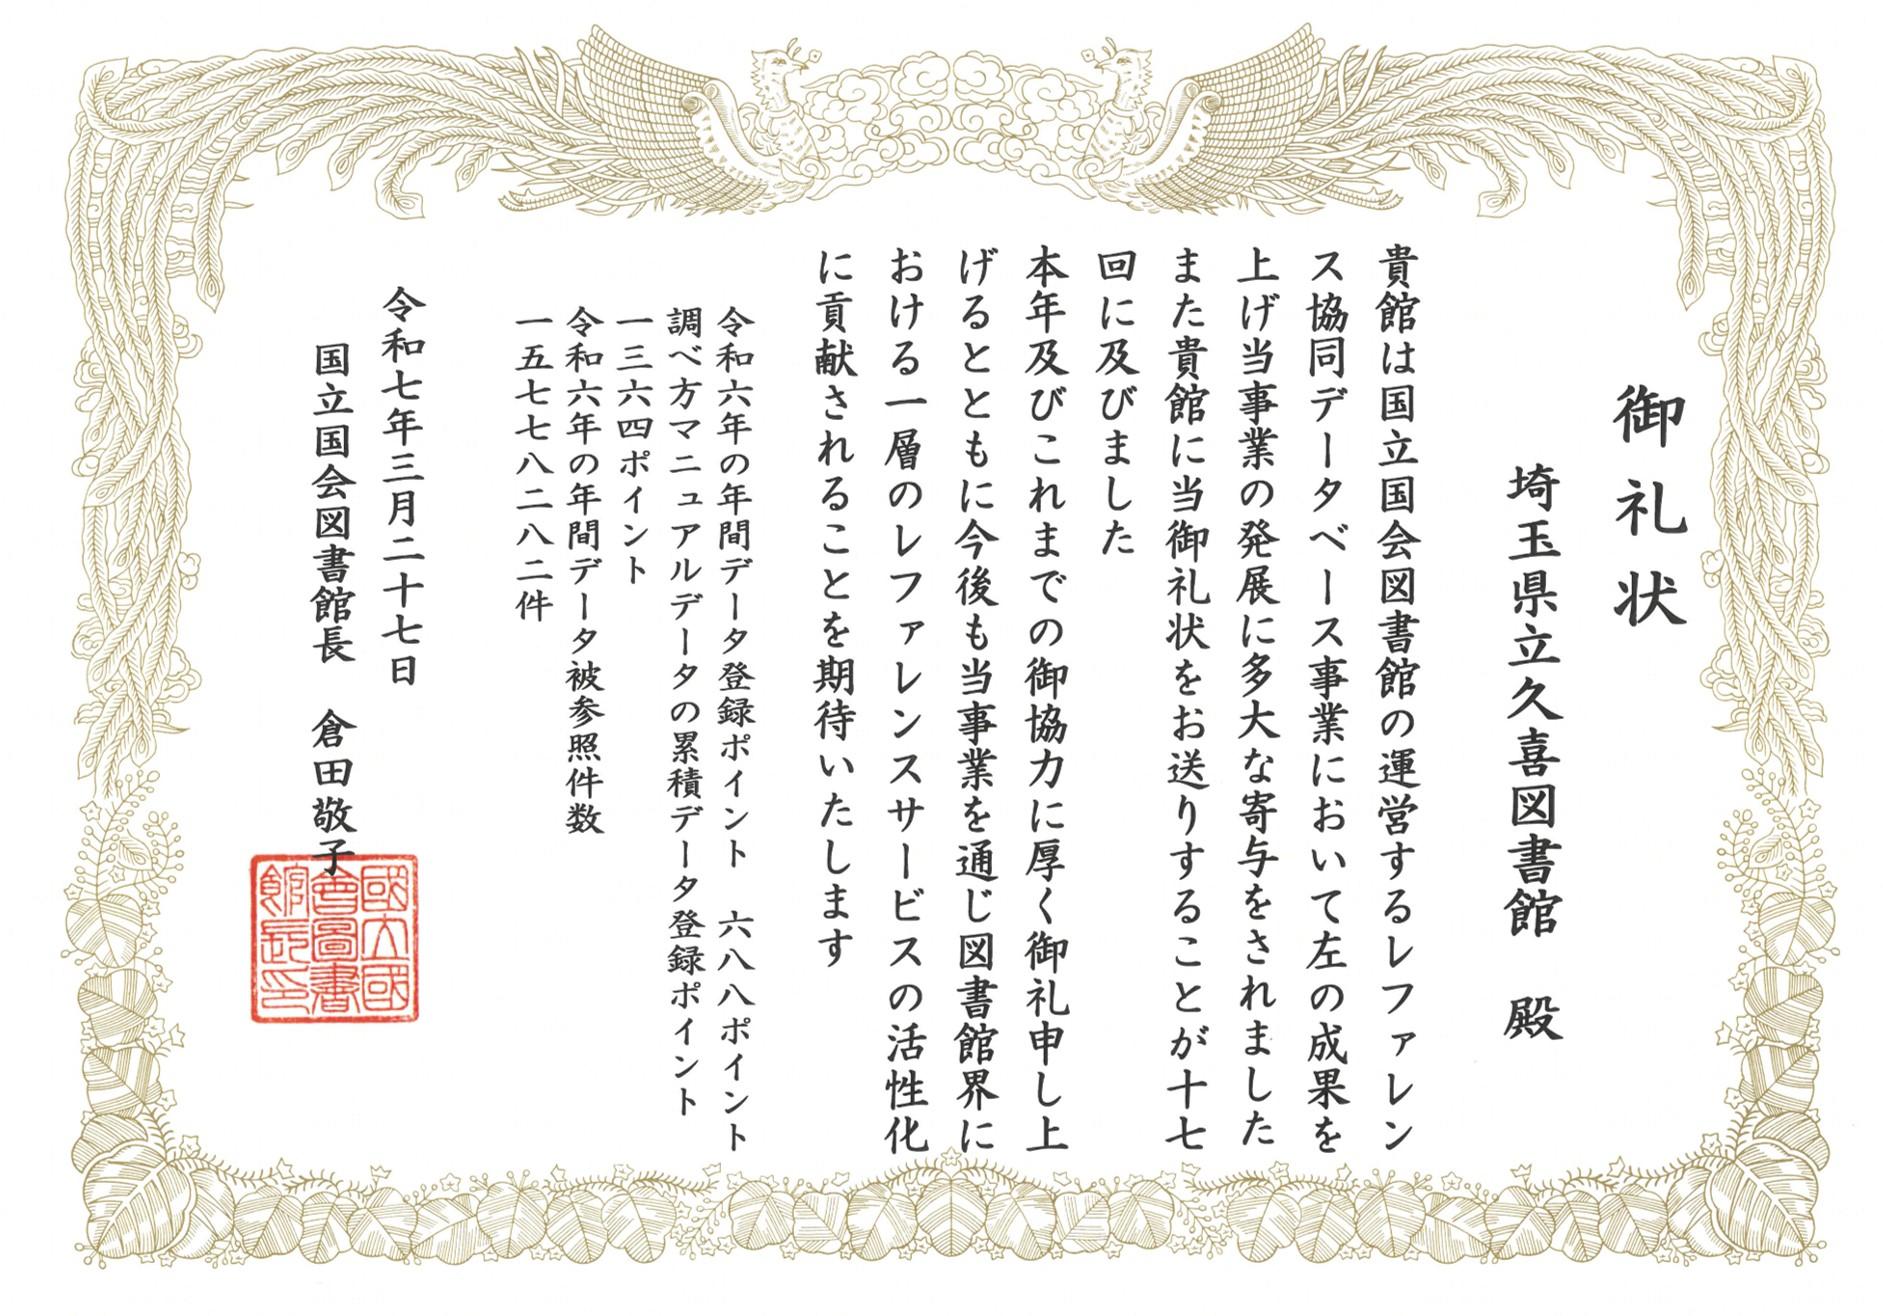 御礼状
埼玉県立久喜図書館　殿
貴館は国立国会図書館の運営するレファレン
ス協同データベース事業において左の成果を
上げ当事業の発展に多大な寄与をされました
また貴館に当御礼状をお送りすることが十七
回に及びました
本年及びこれまでの御協力に厚く御礼申し上
げるとともに今後も当事業を通じ図書館界に
おける一層のレファレンスサービスの活性化
に貢献されることを期待いたします
令和六年の年間データ登録ポイント　六八八ポイント
調べ方マニュアルデータの累積データ登録ポイント
一三六四ポイント
令和六年の年間データ被参照件数
一五七七八二八二件
令和七年三月二十七日
国立国会図書館長　倉田敬子
國立國
會圖書
館長印